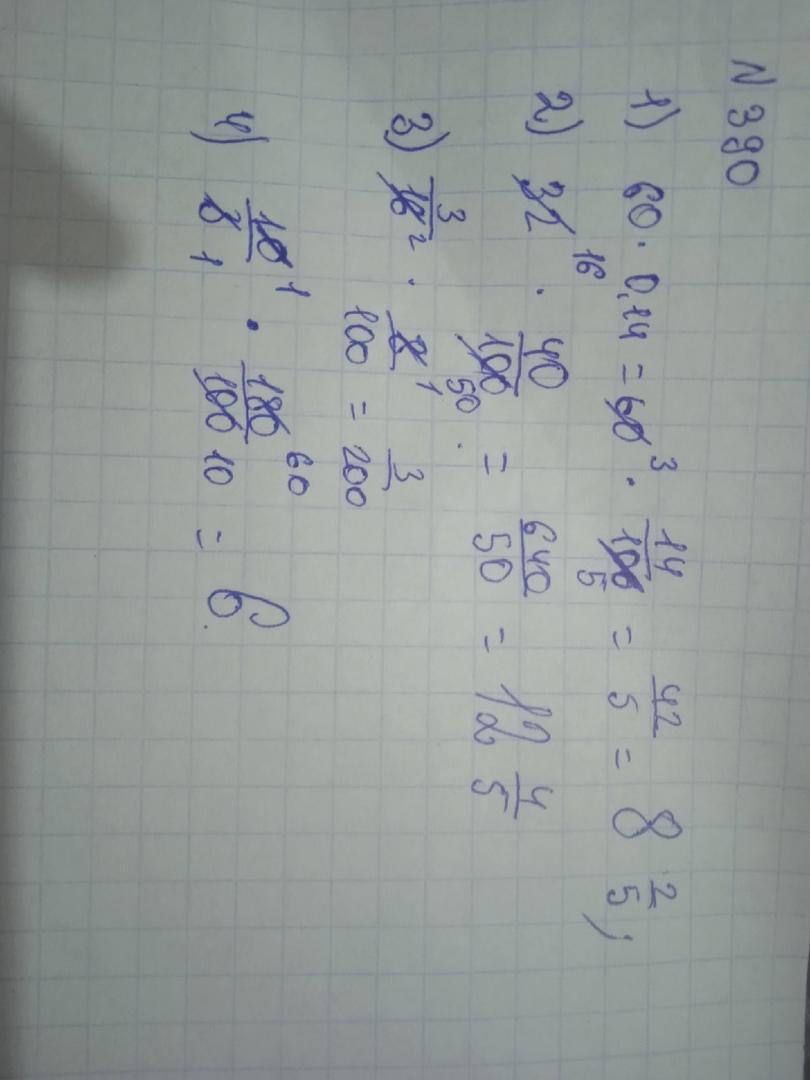 N 390
1) 60 · 0,14 = 60 3 · 14/100 5 = 42/5 = 8 2/5;
2) 32 16 · 40/100 50 = 640/50 = 12 4/5
3) 3/16 2 · 8 1/100 = 3/200
4) 10 1/3 1 · 180 60/100 10 = 6